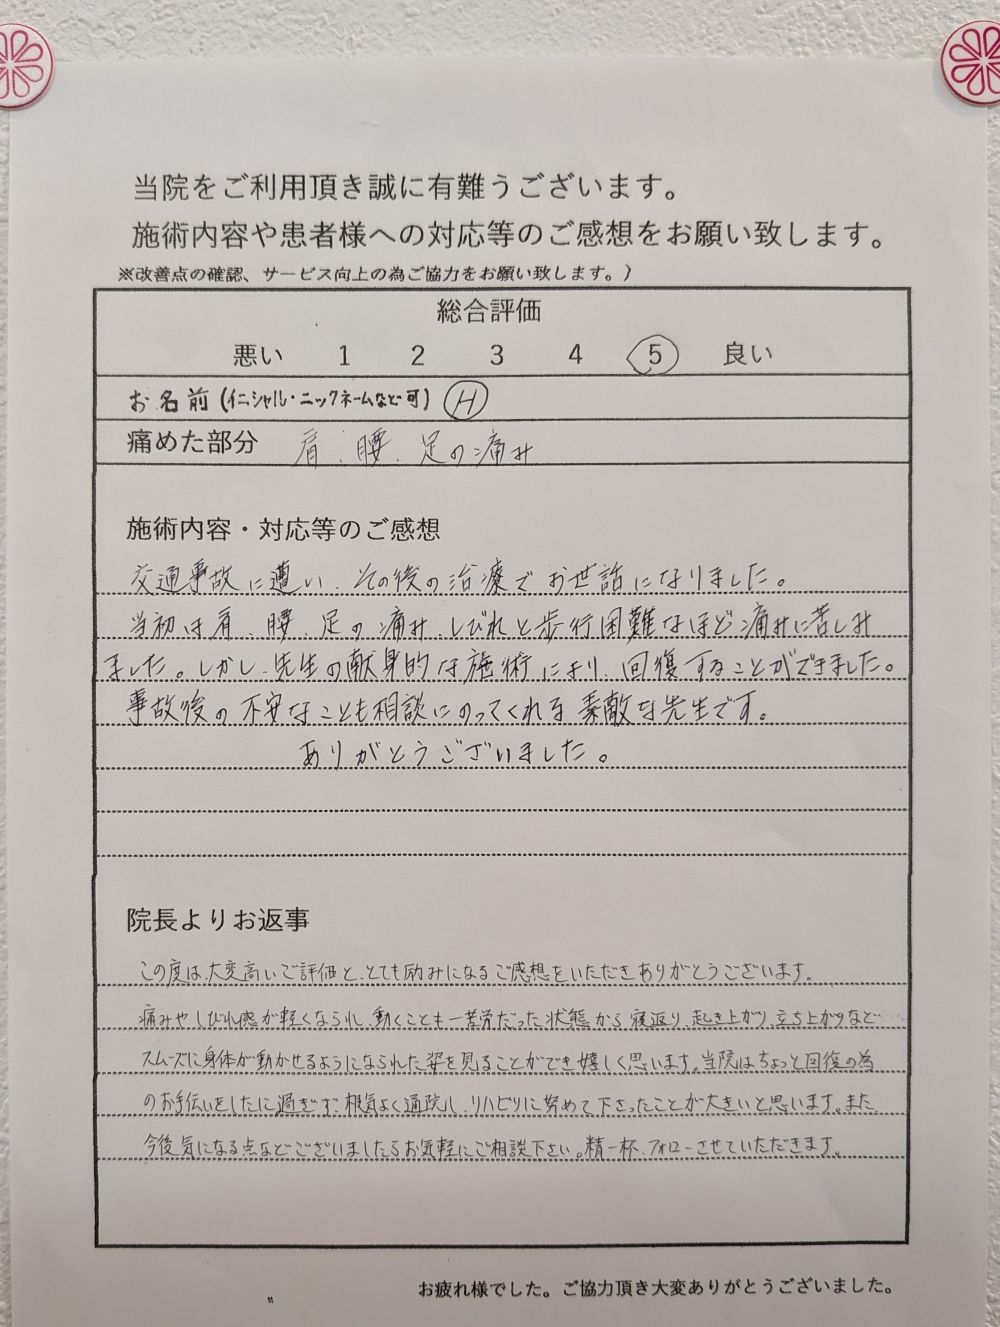 当院をご利用頂き誠に有難うございます。
施術内容や患者様への対応等のご感想をお願い致します。
※改善点の確認、サービス向上の為ご協力をお願い致します。）
総合評価
悪い 1 2 3 4 5 良い
お名前（イニシャル・ニックネームなど可） H
痛めた部分 肩、腰、足の痛み
施術内容・対応等のご感想
交通事故に遭い、その後の治療でお世話になりました。
当初は肩、腰、足の痛み、しびれと歩行困難なほど痛みに苦しみ
ました。しかし、先生の献身的な施術により、回復することができました。
事故後の不安なことも相談にのってくれる素敵な先生です。
ありがとうございました。
院長よりお返事
この度は、大変高いご評価と、とても励みになるご感想をいただきありがとうございます。
痛みやしびれ感が軽くなられ、動くことも一苦労だった状態から寝返り、起き上がり、立ち上がりなど
スムーズに身体が動かせるようになられた姿を見ることができ嬉しく思います。当院はちょっと回復の為
のお手伝いをしたに過ぎず、根気よく通院し、リハビリに努めて下さったことが大きいと思います。また、
今後気になる点などございましたらお気軽にご相談下さい。精一杯、フォローさせていただきます。
お疲れ様でした。ご協力頂き大変ありがとうございました。